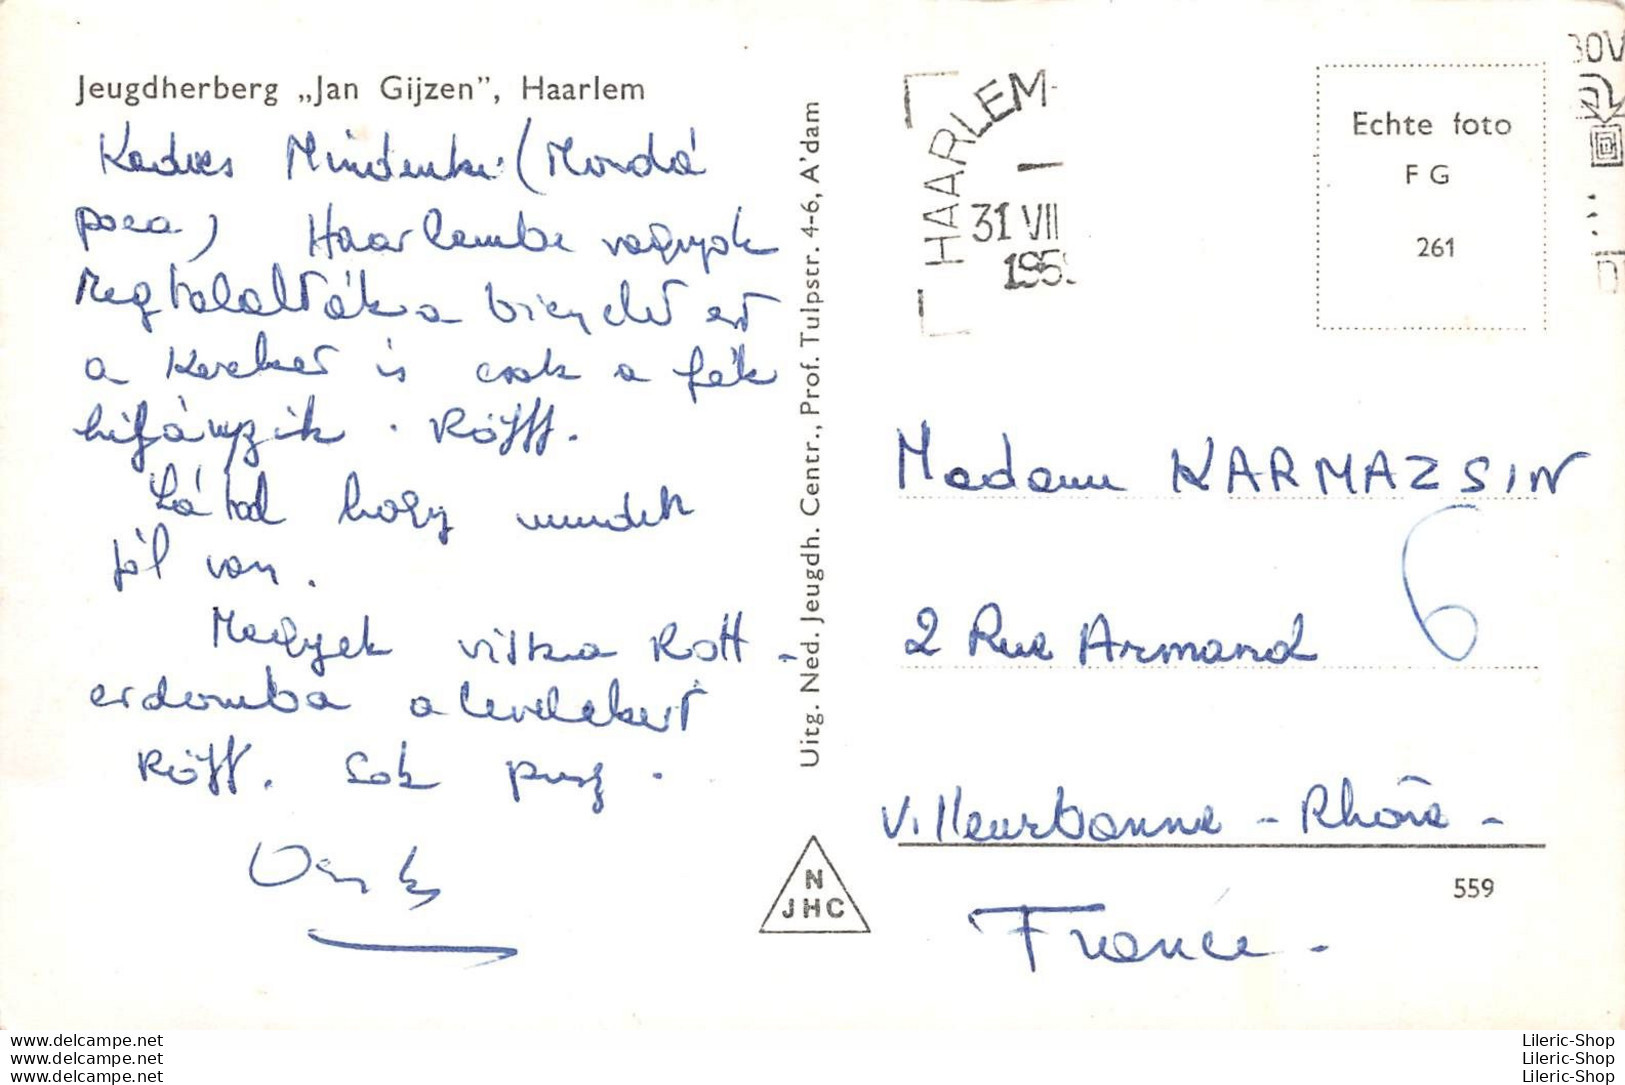 Jeugdherberg „Jan Gijzen”, Haarlem
Kedves Mindenki (Mondá
poca) Haarlembe vagyok
Megtalalták a biciclit ert
a kereket is csak a fék
hifányzik. Röfff.
Látod hogy mindek
jól van.
Megyek vissza Rott-
erdomba a levelekert
Röff. Sok pusz.
Uitg. Ned. Jeugdh. Centr., Prof. Tulpstr. 4-6, A'dam
N
JHC
HAARLEM
31 VII
195
Echte foto
FG
261
Madame KARMAZSIN
6
2 Rue Armand
Villeurbanne - Rhône -
559
France -
lileric-shop.delcampe.net
lileric-shop.delcampe.net
lileric-shop.delcampe.net
Lileric-Shop
Lileric-Shop
Lileric-Shop